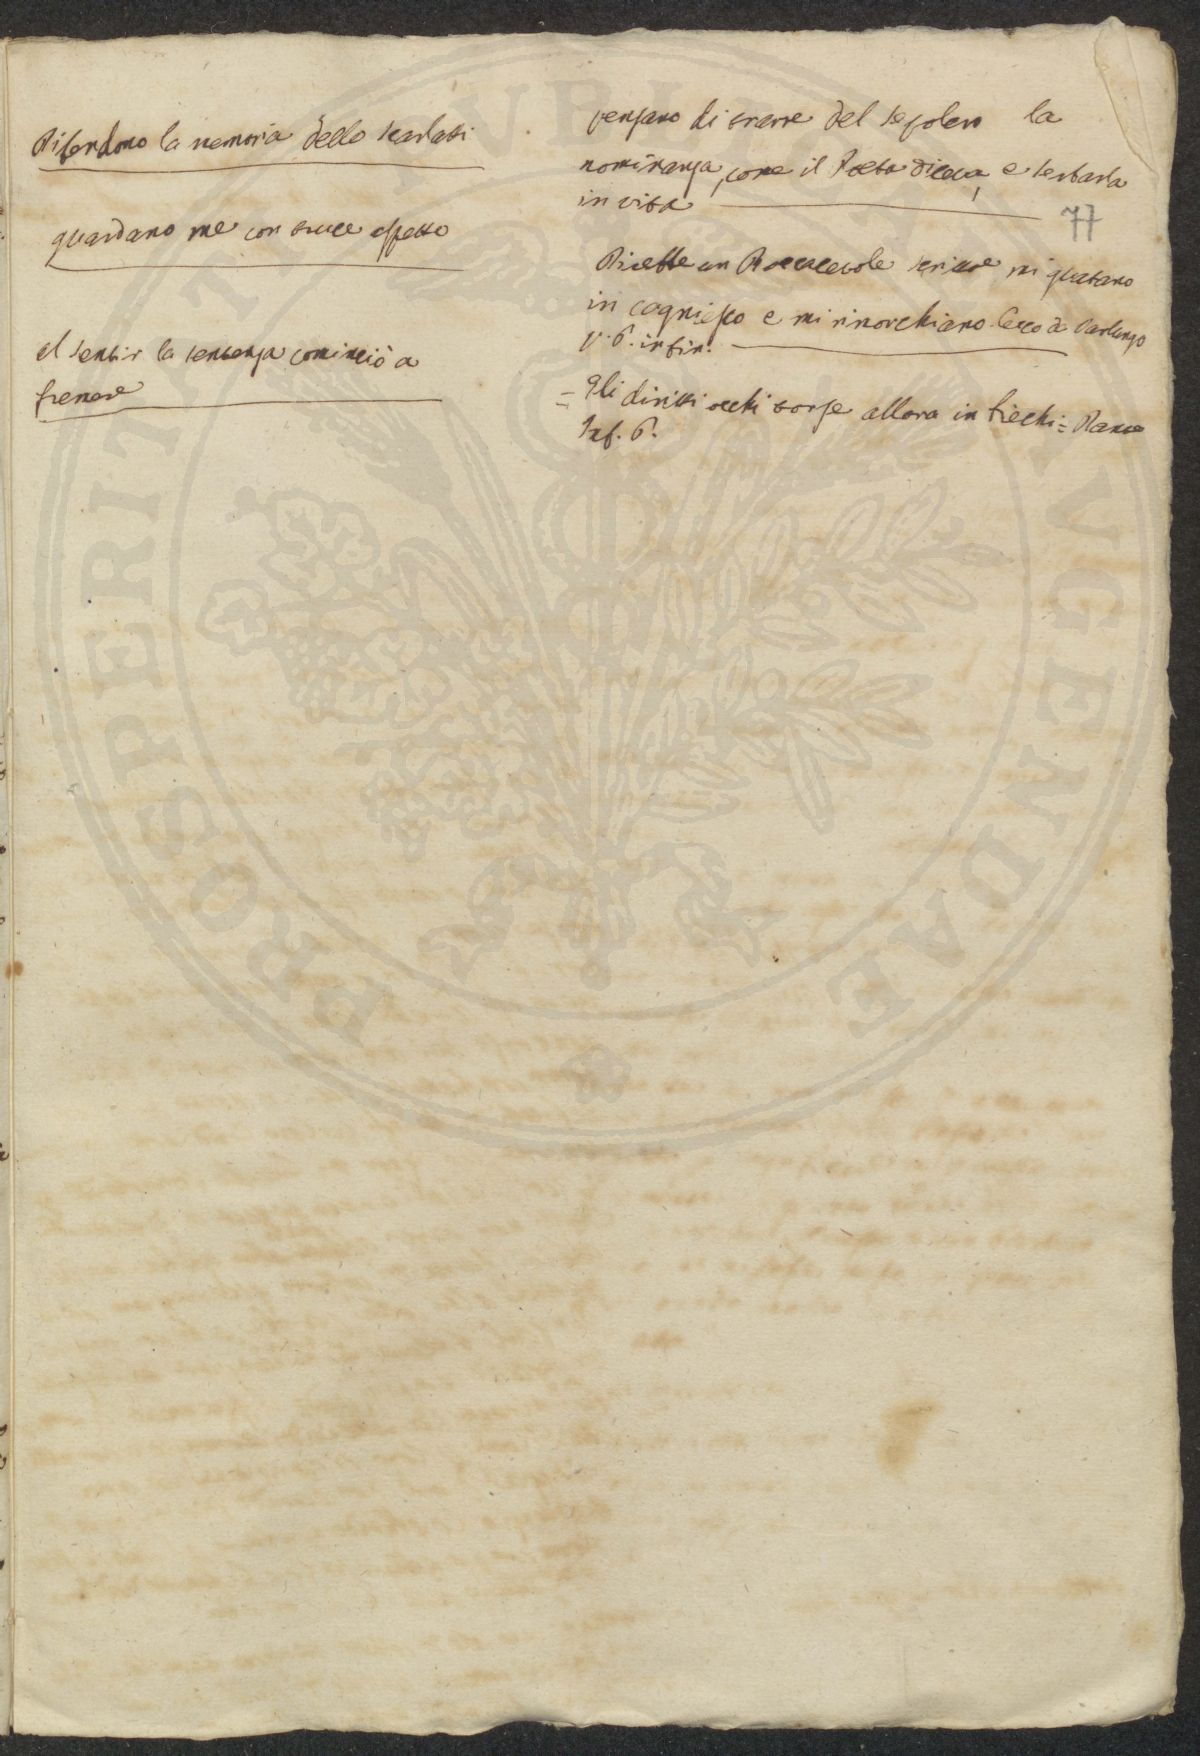 Difendono la memoria dello Scarlatti
guardano me con truce aspetto
al sentir la sentenza cominciò a
fremere
pensano di trarre del sepolcro la
nominanza, come il Poeta diceva, e serbarla
in vita
77
Direbbe un Boccacevole scrittore mi guatano
in cagniesco e mi rinorchiano Cecco da Varlungo
p. 6. in fin.
= Gli diritti occhi torse allora in biechi = Dante
Inf. 6.
PROSPERITATI PVBLICAE AVGENDAE